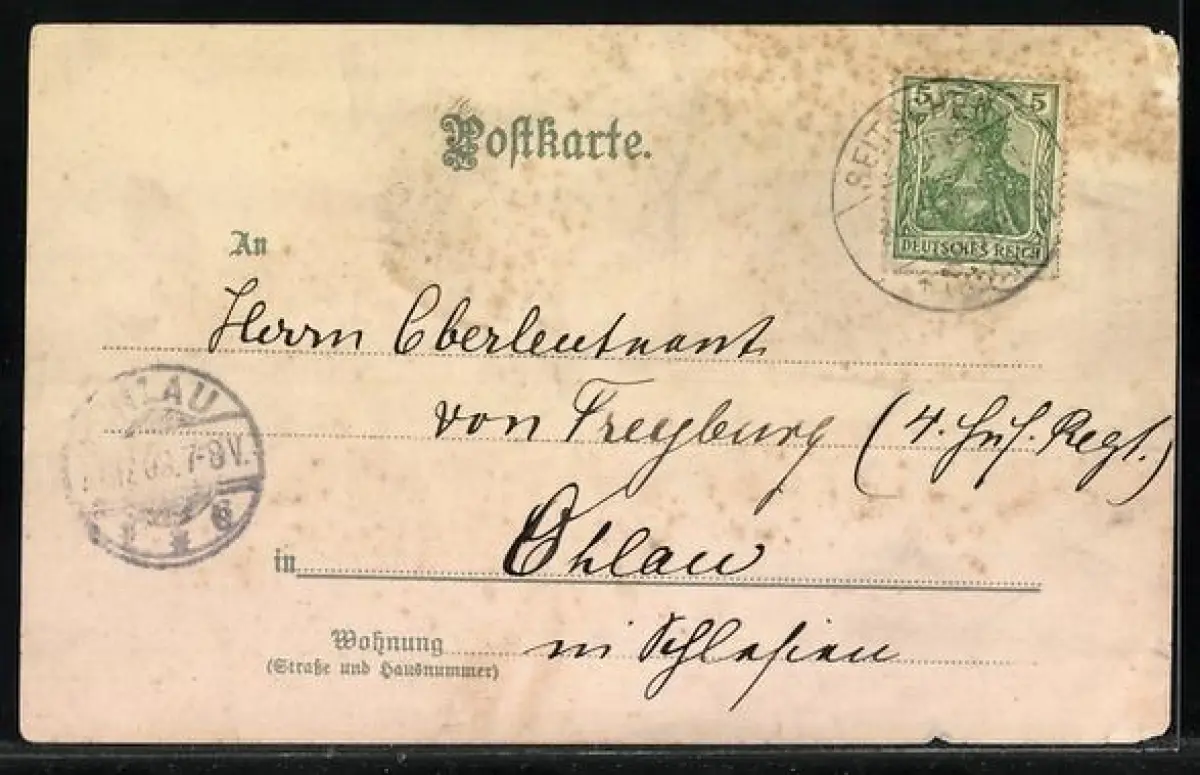 Postkarte.
5 5
DEUTSCHES REICH
An
Herrn Oberleutnant
von Treyburg (4. Hus. Regt.)
LAU
7-8V.
in Ohlau
Wohnung in Schlesien
(Straße und Hausnummer)